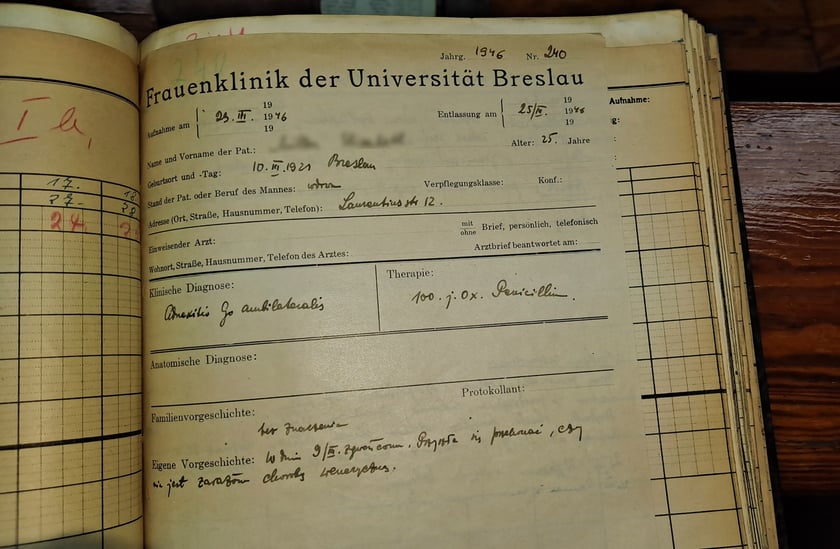 I b,
17.
27.
24.
Jahrg. 1946 Nr. 240
Frauenklinik der Universität Breslau
19
Aufnahme am 23. III. 1946
19
19
Entlassung am 25/III. 1946
19
Name und Vorname der Pat.:
Alter: 25. Jahre
Geburtsort und -Tag: 10. III. 1921 Breslau
Stand der Pat. oder Beruf des Mannes: wdowa Verpflegungsklasse: Konf.:
Adresse (Ort, Straße, Hausnummer, Telefon): Laurentiusstr 12.
Einweisender Arzt:
mit
ohne Brief, persönlich, telefonisch
Wohnort, Straße, Hausnummer, Telefon des Arztes:
Arztbrief beantwortet am:
Klinische Diagnose:
Adnexitis Go ambilateralis
Therapie:
100. j. Ox. Penicillin.
Anatomische Diagnose:
Protokollant:
Familienvorgeschichte:
bez znaczenia
Eigene Vorgeschichte: W dniu 9/III. zgwałcona. Przyszła się przekonać, czy
nie jest zarażona chorobą weneryczną.
Aufnahme:
g: